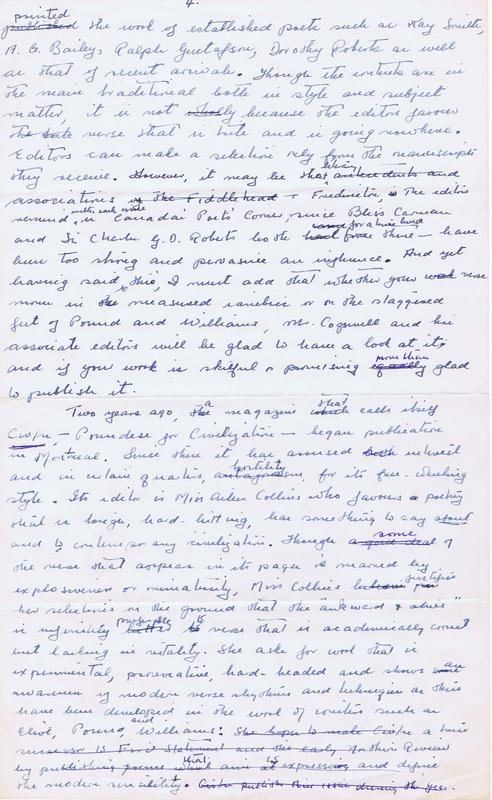 4.
printed
published the work of established poets such as Kay Smith,
A. G. Bailey, Ralph Gustafson, Dorothy Roberts as well
as that of recent arrivals. Though the contents are in
the main traditional both in style and subject
matter, it is not wholly because the editors favour
verse that is trite and is going nowhere.
Editors can make a selection only from the manuscripts
they receive. However, it may be that literary antecedents and
associations of The Fiddlehead & Fredericton, as the editors
remind with each issue is Canada's Poets' Corner, since Bliss Carman
and Sir Charles G. D. Roberts both lived for a time there — have
been too strong and pervasive an influence. And yet
having said this, I must add that whether your verse
moves in the measured iambics or on the staggered
feet of Pound and Williams, Mr. Cogswell and his
associate editors will be glad to have a look at it;
and if your work is skilful or promising more than equally glad
to publish it.
Two years ago, a magazine that which calls itself
Civ/n, — Poundese for Civilization — began publication
in Montreal. Since then it has aroused both interest
and in certain quarters, hostility antagonism, for its free-wheeling
style. Its editor is Miss Aileen Collins who favours a poetry
that is tough, hard-hitting, has something to say about
and to contemporary civilization. Though some a good deal of
the verse that appears in its pages is marred by
explosiveness or miniaturity, Miss Collins justifies
her selections on the ground that the awkward & alive"
is infinitely preferable better to verse that is academically correct
but lacking in vitality. She asks for work that is
experimental, provocative, hard-headed and shows an some
awareness of modern verse rhythms and techniques as these
have been developed in the work of writers such as
Eliot, Pound, and Williams. She hopes to make Civ/n a true
successor to First Statement and the early Northern Review
by publishing poems which that aim at to expressing and define
the modern sensibility. Civ/n publishes three issues during the year.